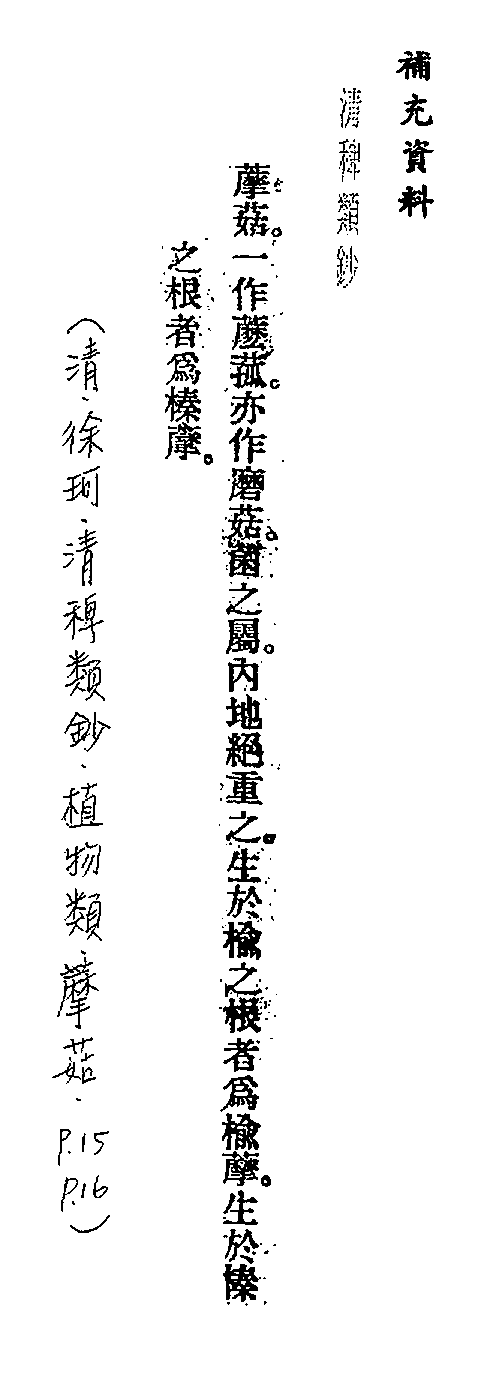 補充資料
清稗類鈔
蘑菇。一作蘑菰。亦作磨菇。菌之屬。內地絕重之。生於榆之根者爲榆蘑。生於榛
之根者爲榛蘑。
（清．徐珂．清稗類鈔．植物類．蘑菇．P.15 P.16）